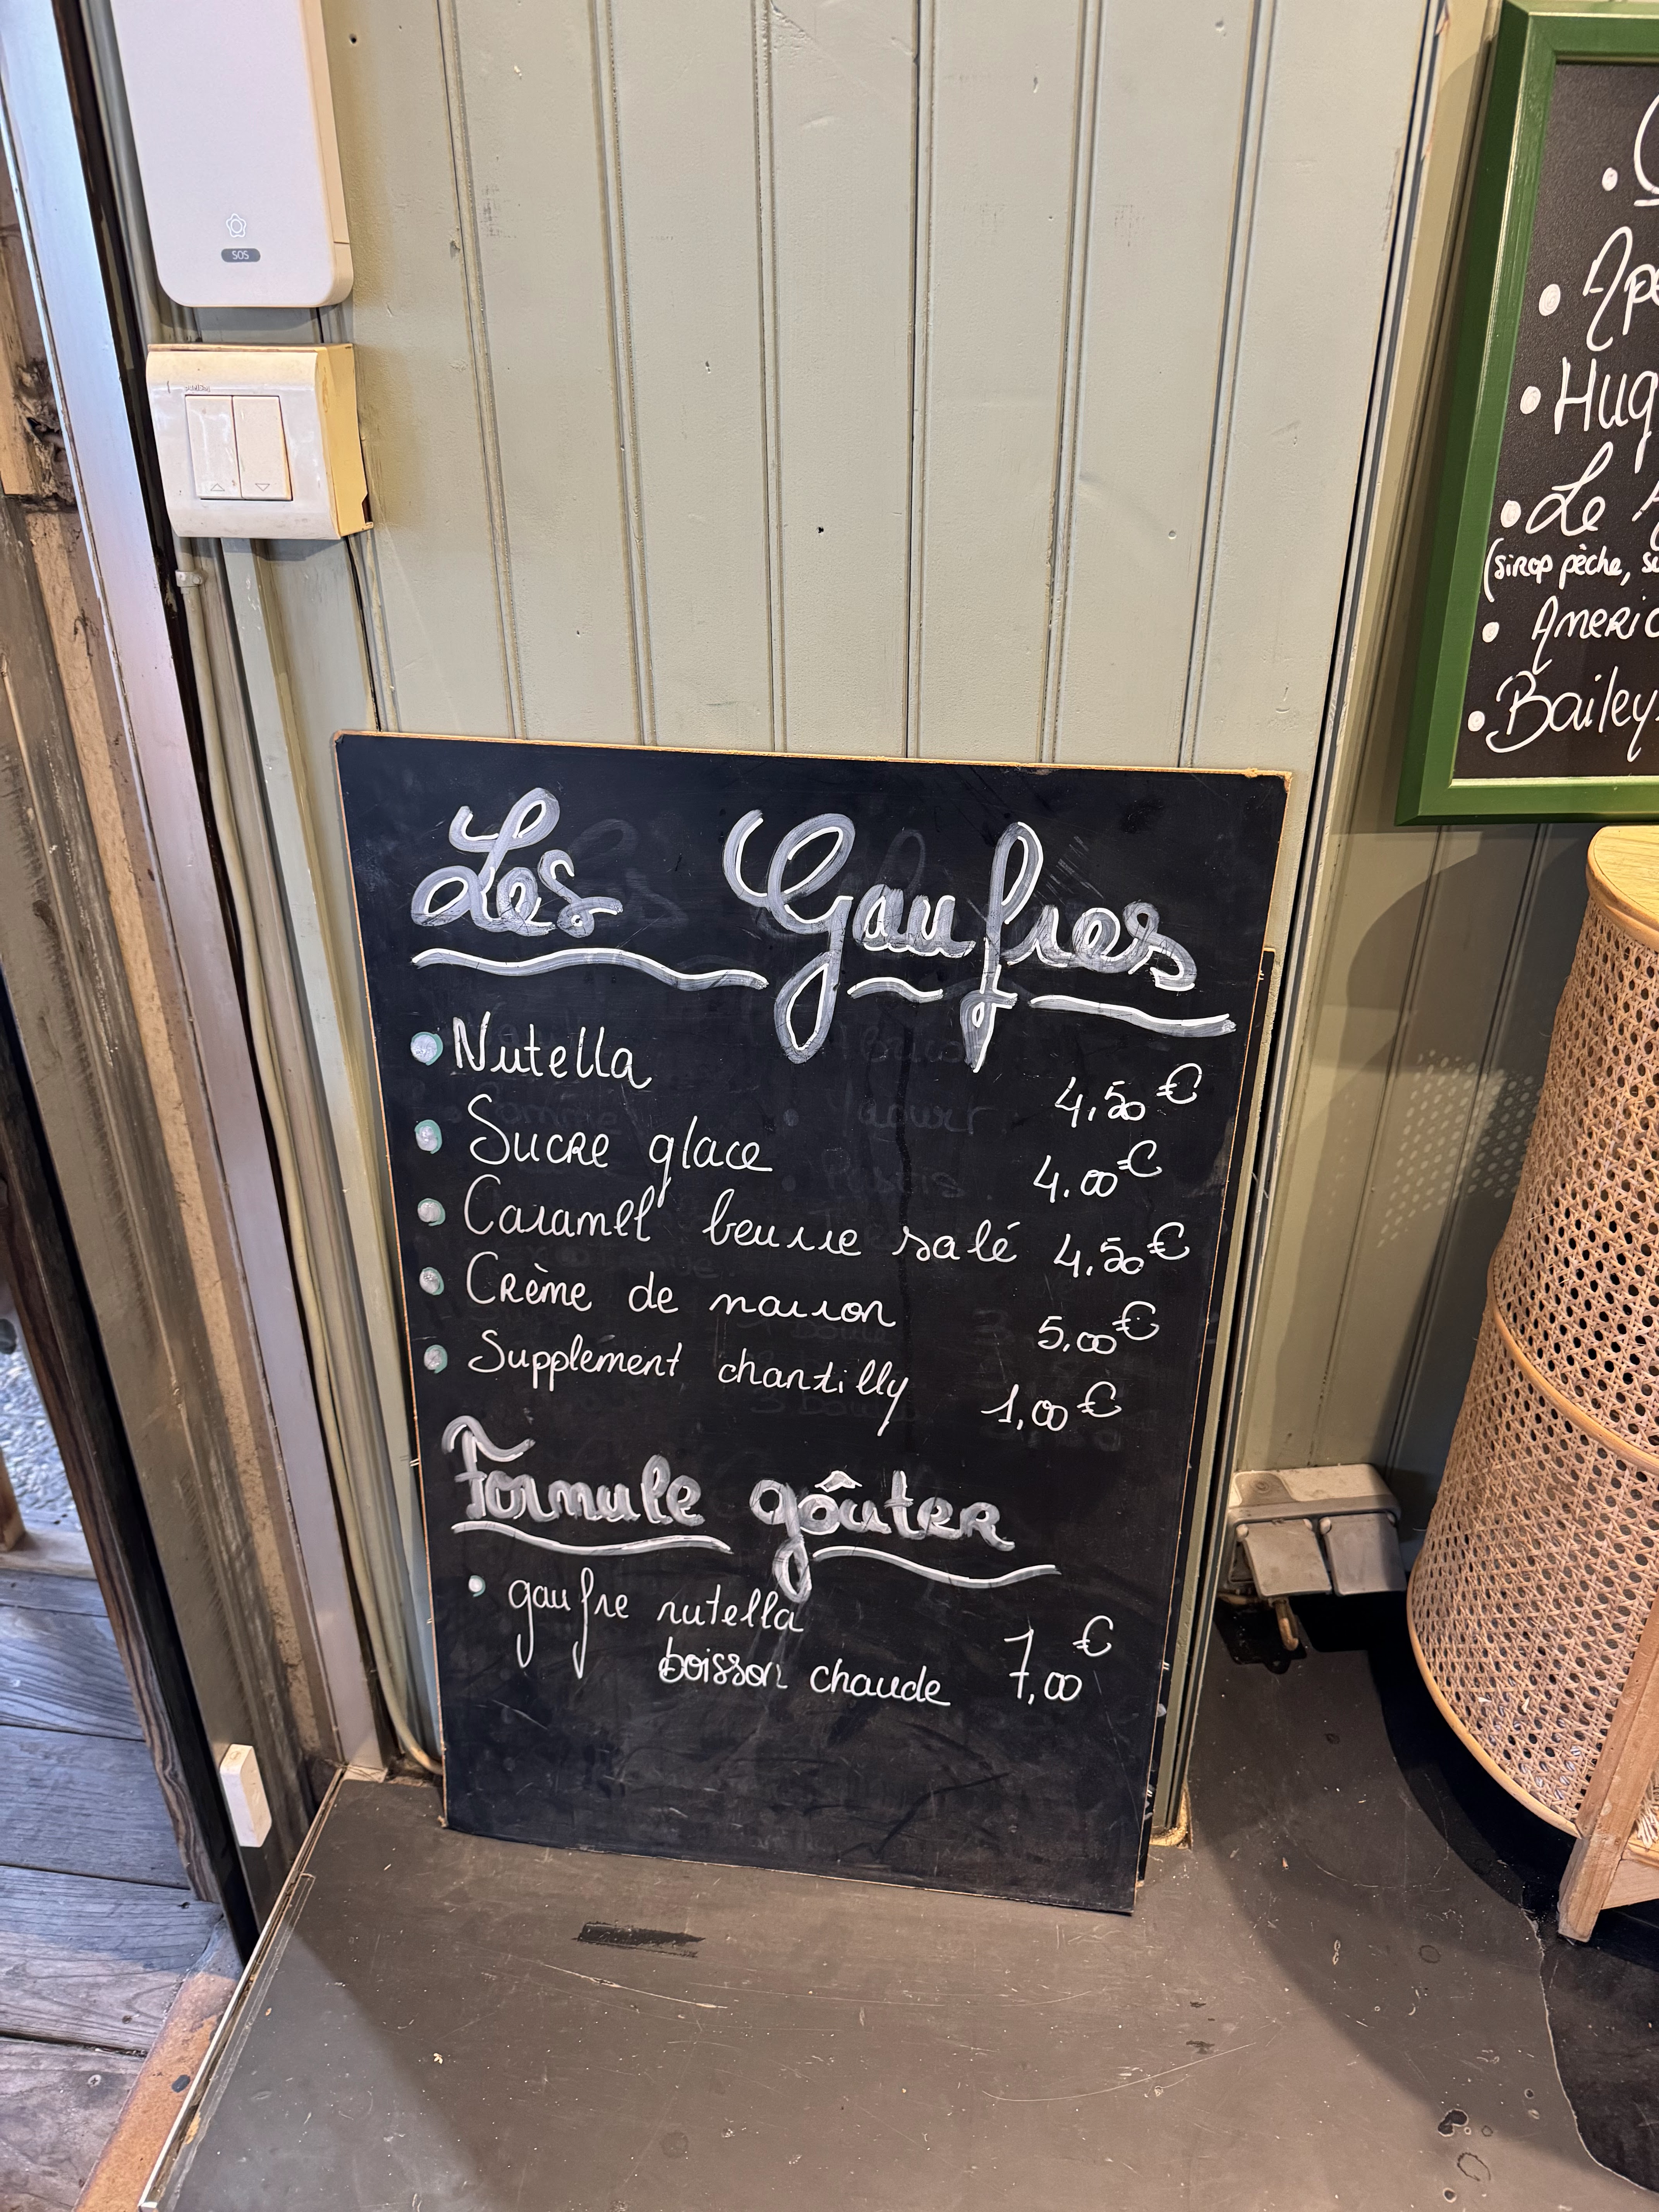 SOS
Les Gaufres
Nutella 4,50€
Sucre glace 4.00€
Caramel beurre salé 4,50€
Crème de marron 5,00€
Supplément chantilly 1,00€
Formule goûter
gaufre nutella
boisson chaude 7,00€
Le
(sirop pèche,
Bailey